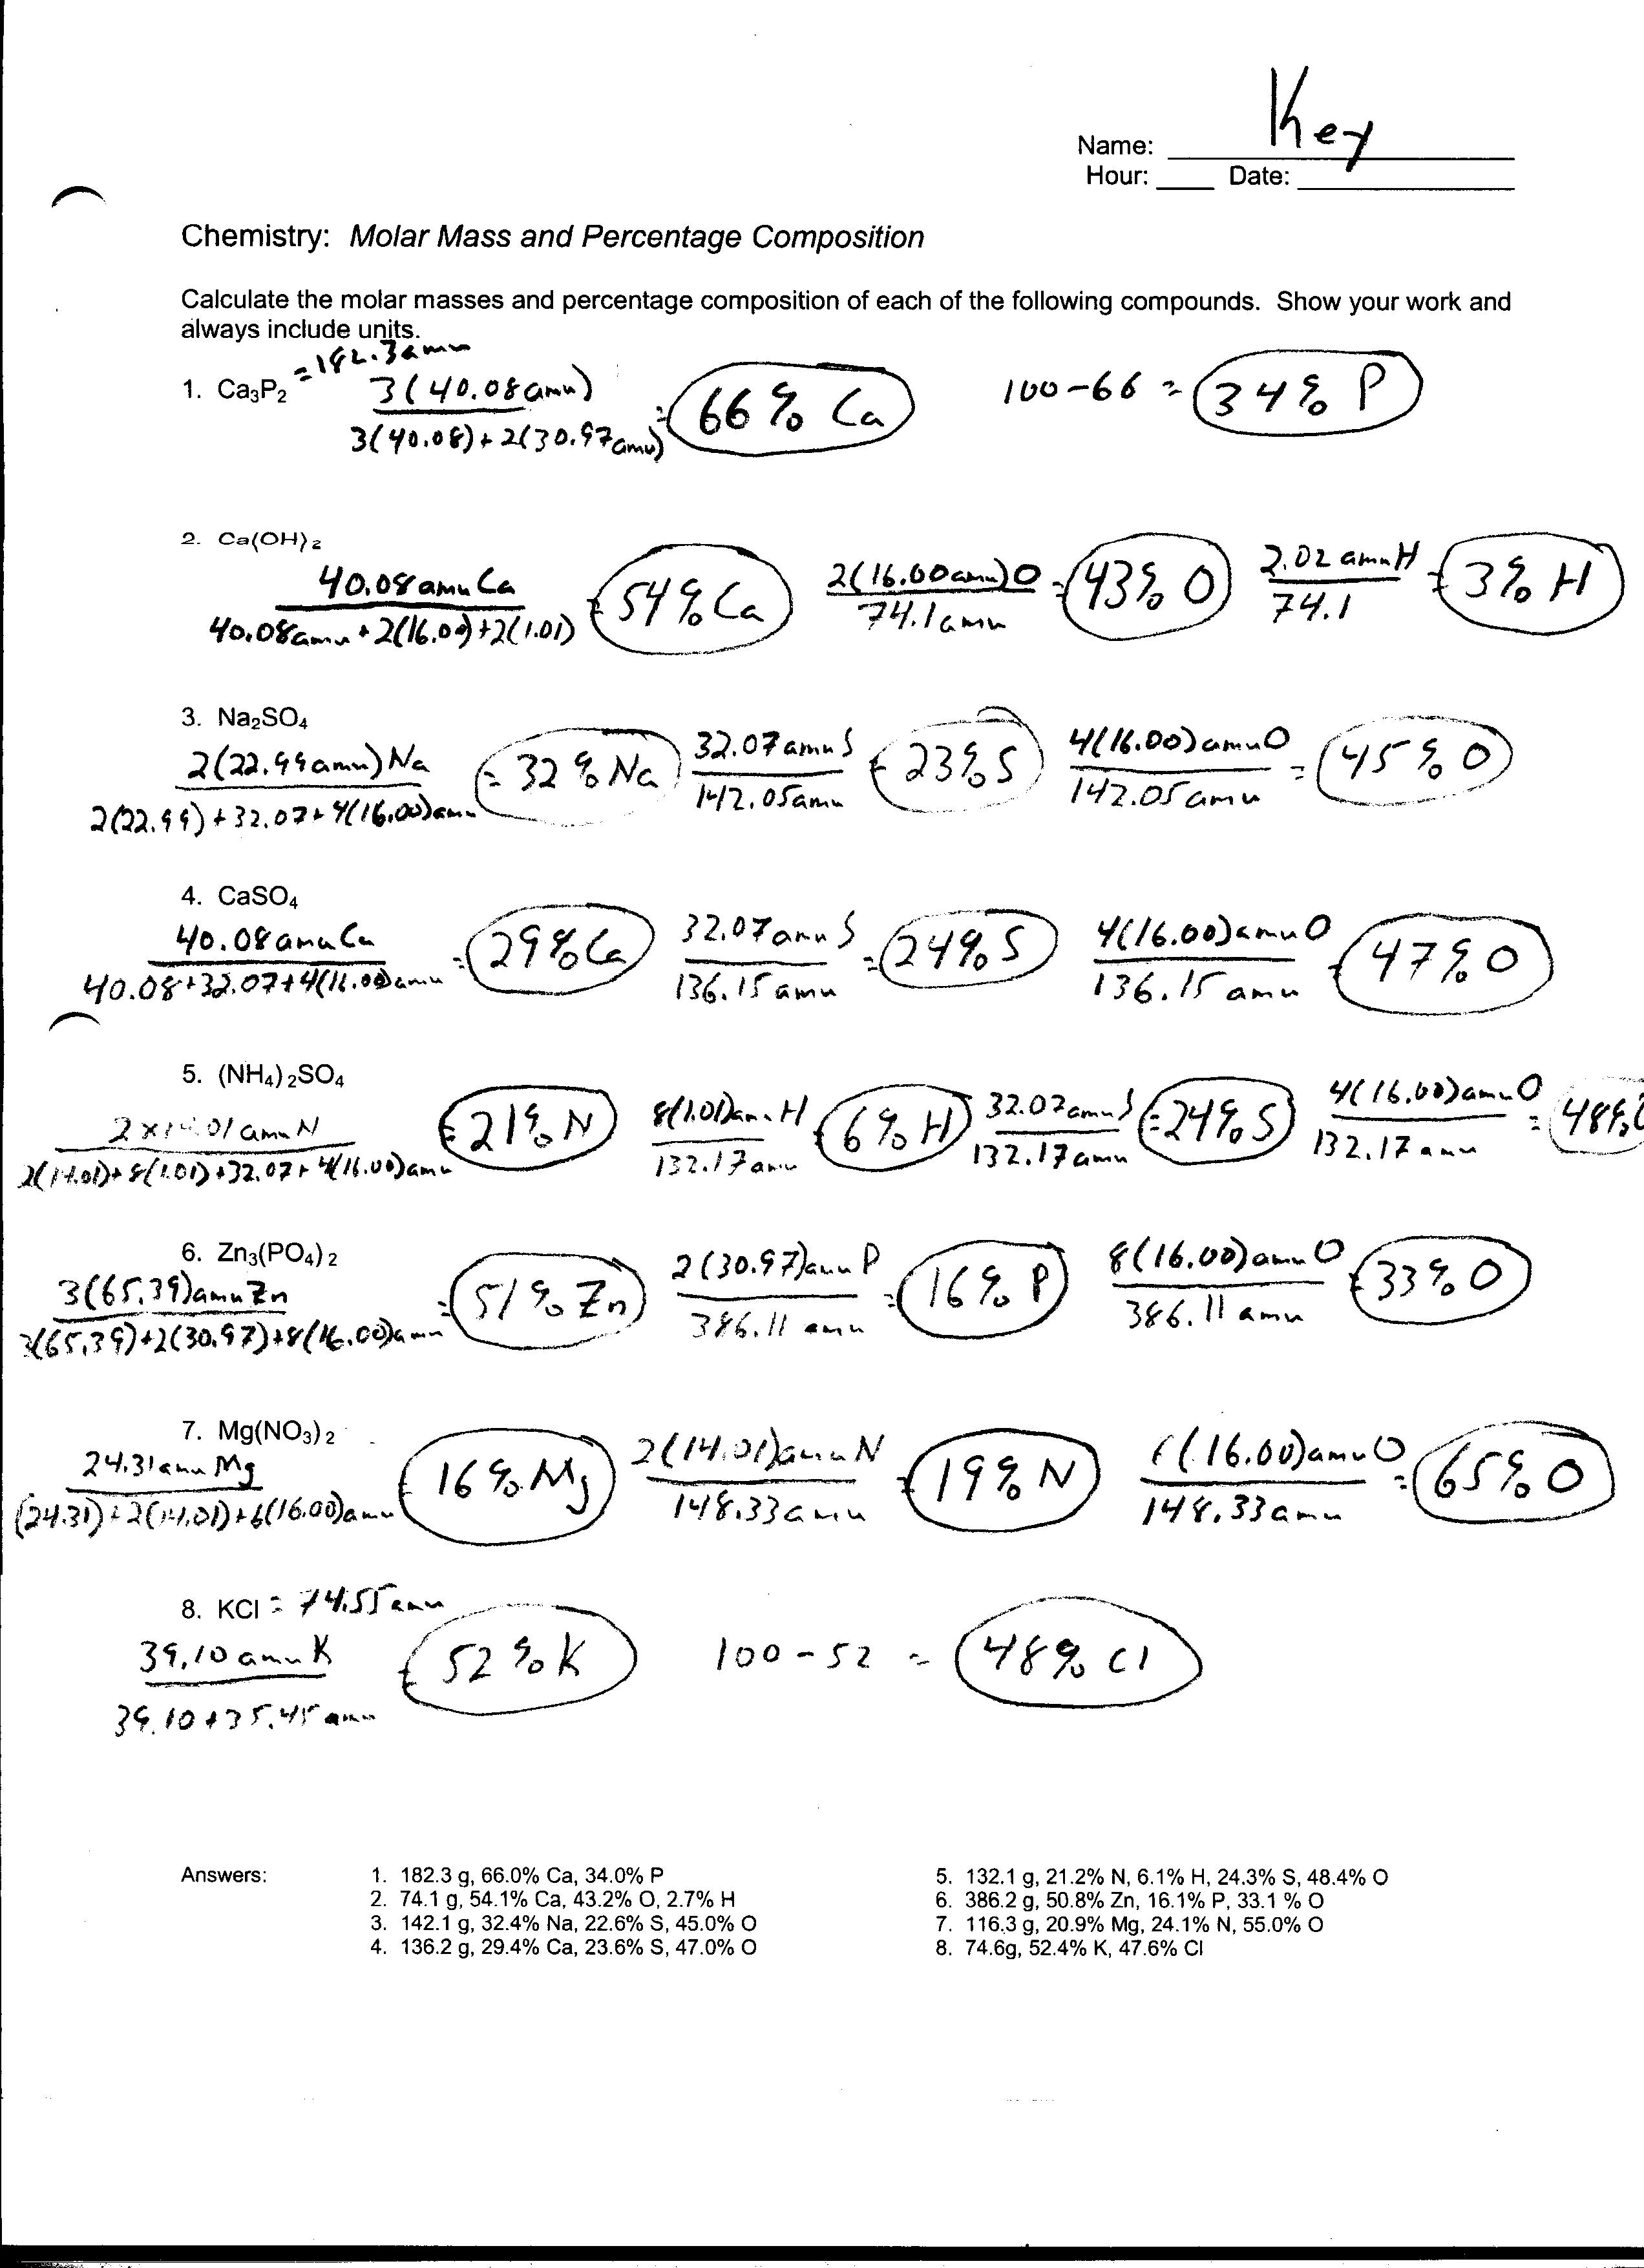 Key
Name:
Hour: Date:
Chemistry: Molar Mass and Percentage Composition
Calculate the molar masses and percentage composition of each of the following compounds. Show your work and
always include units.
1. Ca3P2 = 182.3 amu
3(40.08 amu)
3(40.08) + 2(30.97 amu) = 66% Ca 100-66 = 34% P
2. Ca(OH)2
40.08 amu Ca
40.08 amu + 2(16.00) + 2(1.01) = 54% Ca 2(16.00 amu) O
74.1 amu = 43% O 2.02 amu H
74.1 = 3% H
3. Na2SO4
2(22.99 amu) Na
2(22.99) + 32.07 + 4(16.00) amu = 32% Na 32.07 amu S
142.05 amu = 23% S 4(16.00) amu O
142.05 amu = 45% O
4. CaSO4
40.08 amu Ca
40.08 + 32.07 + 4(16.00) amu = 29% Ca 32.07 amu S
136.15 amu = 24% S 4(16.00) amu O
136.15 amu = 47% O
5. (NH4)2SO4
2 x 14.01 amu N
2(14.01) + 8(1.01) + 32.07 + 4(16.00) amu = 21% N 8(1.01) amu H
132.17 amu = 6% H 32.07 amu S
132.17 amu = 24% S 4(16.00) amu O
132.17 amu = 48%
6. Zn3(PO4)2
3(65.39) amu Zn
3(65.39) + 2(30.97) + 8(16.00) amu = 51% Zn 2(30.97) amu P
386.11 amu = 16% P 8(16.00) amu O
386.11 amu = 33% O
7. Mg(NO3)2
24.31 amu Mg
(24.31) + 2(14.01) + 6(16.00) amu = 16% Mg 2(14.01) amu N
148.33 amu = 19% N (16.00) amu O
148.33 amu = 65% O
8. KCl = 74.55 amu
39.10 amu K
39.10 + 35.45 amu = 52% K 100 - 52 = 48% Cl
Answers: 1. 182.3 g, 66.0% Ca, 34.0% P
2. 74.1 g, 54.1% Ca, 43.2% O, 2.7% H
3. 142.1 g, 32.4% Na, 22.6% S, 45.0% O
4. 136.2 g, 29.4% Ca, 23.6% S, 47.0% O
5. 132.1 g, 21.2% N, 6.1% H, 24.3% S, 48.4% O
6. 386.2 g, 50.8% Zn, 16.1% P, 33.1 % O
7. 116.3 g, 20.9% Mg, 24.1% N, 55.0% O
8. 74.6g, 52.4% K, 47.6% Cl